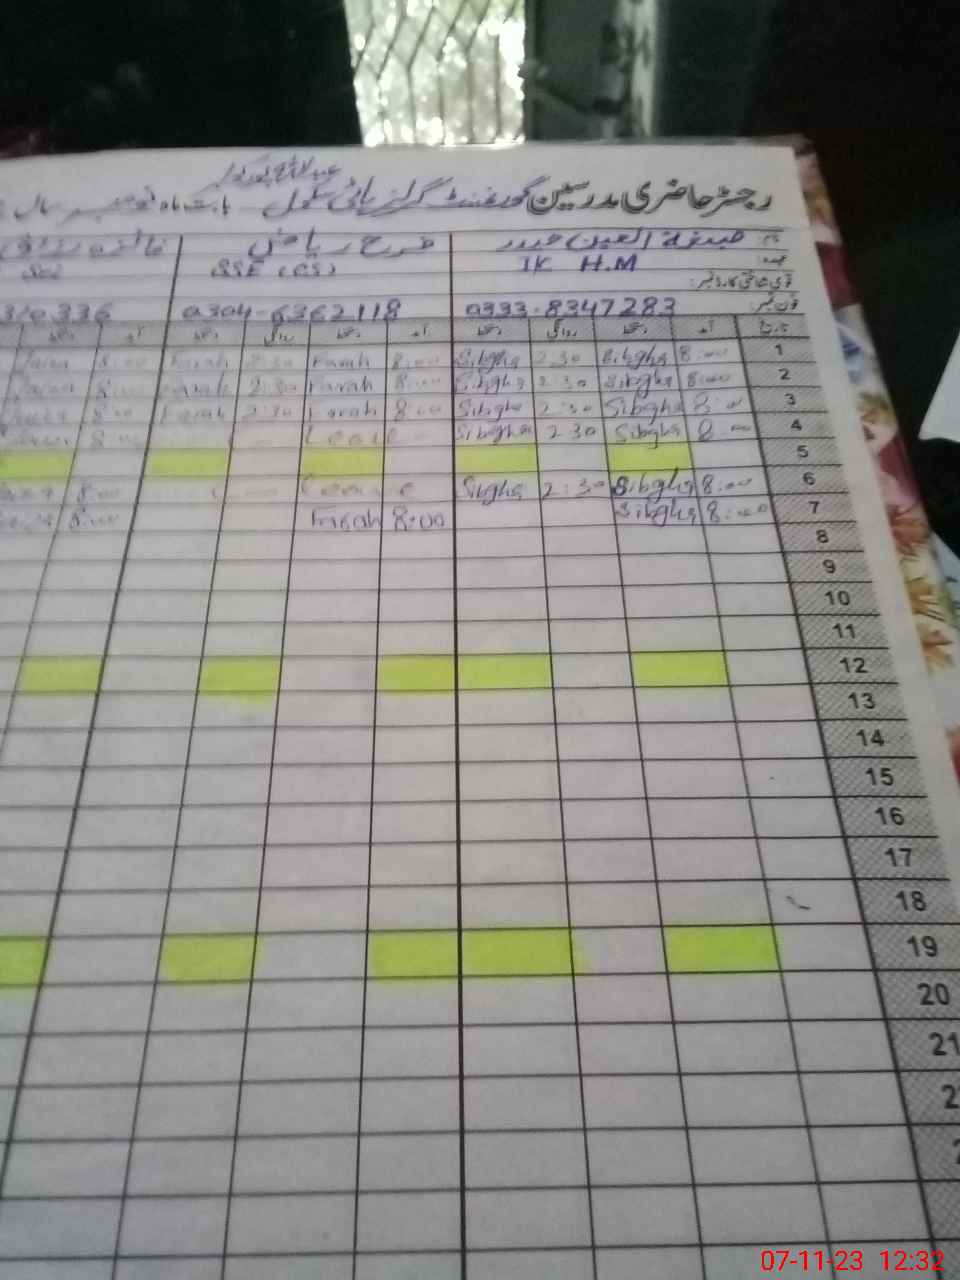 رجسٹر حاضری مدرسین گورنمنٹ گرلز ہائی سکول بابت ماہ نومبر سال
نام صبغۃ العین حیدر فرح ریاض
عہدہ IK H.M SSE (CS)
قومی شناختی کارڈ نمبر:
فون نمبر: 0333-8347283 0304-6362118 310336
تاریخ آمد دستخط روانگی دستخط آمد دستخط روانگی دستخط آمد دستخط
1 8:00 Sibgha 2:30 Sibgha 8:00 Farah 2:30 Farah 8:00
2 8:00 Sibgha 2:30 Sibgha 8:00 Farah 2:30 Farah 8:00
3 8:00 Sibgha 2:30 Sibgha 8:00 Farah 2:30 Farah 8:00
4 8:00 Sibgha 2:30 Sibgha Leave 8:00
5
6 8:00 Sibgha 2:30 Sibgha Leave 8:00
7 8:00 Sibgha 8:00 Farah 8:00
8
9
10
11
12
13
14
15
16
17
18
19
20
21
07-11-23 12:32